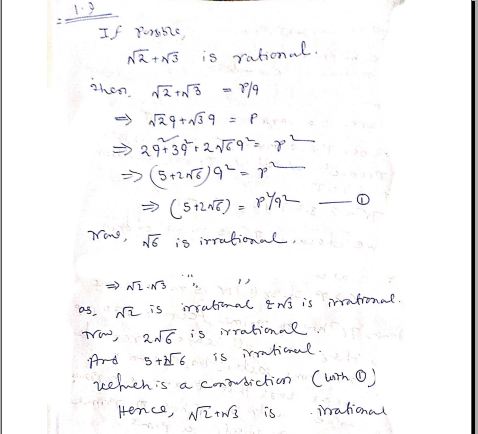 1.3
If Possible,
√2+√3 is rational.
then, √2+√3 = P/q
⇒ √2q+√3q = P
⇒ 2q²+3q²+2√6q² = p²
⇒ (5+2√6)q² = p²
⇒ (5+2√6) = p²/q² —— ①
Now, √6 is irrational.
⇒ √2·√3 " " "
as, √2 is irrational & √3 is irrational.
Now, 2√6 is irrational
And 5+2√6 is irrational.
which is a contradiction (with ①)
Hence, √2+√3 is irrational